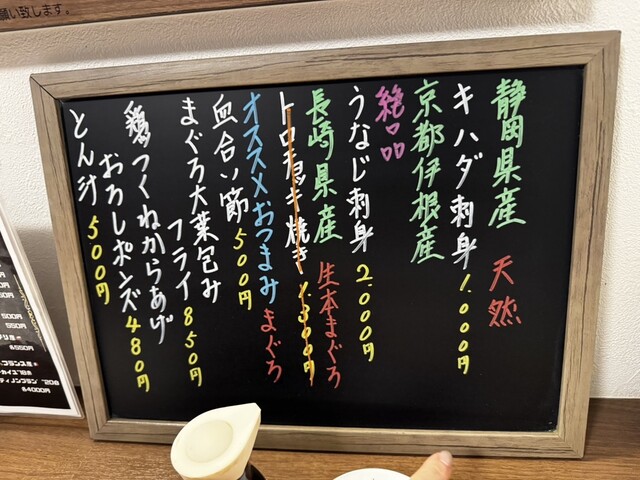 静岡県産 天然
キハダ刺身 1.000円
京都伊根産
絶品
うなじ刺身 2.000円
長崎県産 生本まぐろ
トロ焼き 1.300円
オススメおつまみ まぐろ
血合い節 500円
まぐろ大葉包み
フライ 850円
鶏つくねからあげ
おろしポンズ 480円
とん汁 500円
願い致します。
500円
550円
¥550円
¥4000円